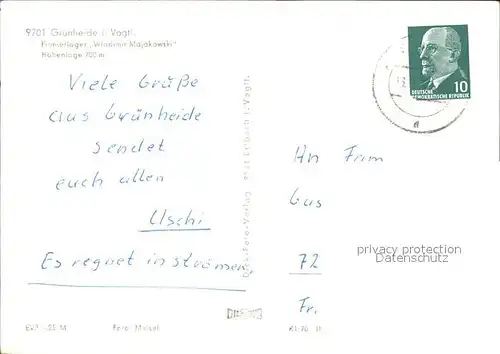 9701 Grünheide i. Vogtl.
Pionierlager „Wladimir Majakowski"
Höhenlage 700 m
Viele Grüße
aus Grünheide
sendet
euch allen
Uschi
Es regnet in strömen.
10
DEUTSCHE
DEMOKRATISCHE REPUBLIK
a
An Fam
Gus
72
Fr.
privacy protection
Datenschutz
Foto-Verlag 9921 Erlbach i. Vogtl.
EVP -,25 M
Foto: Meisel